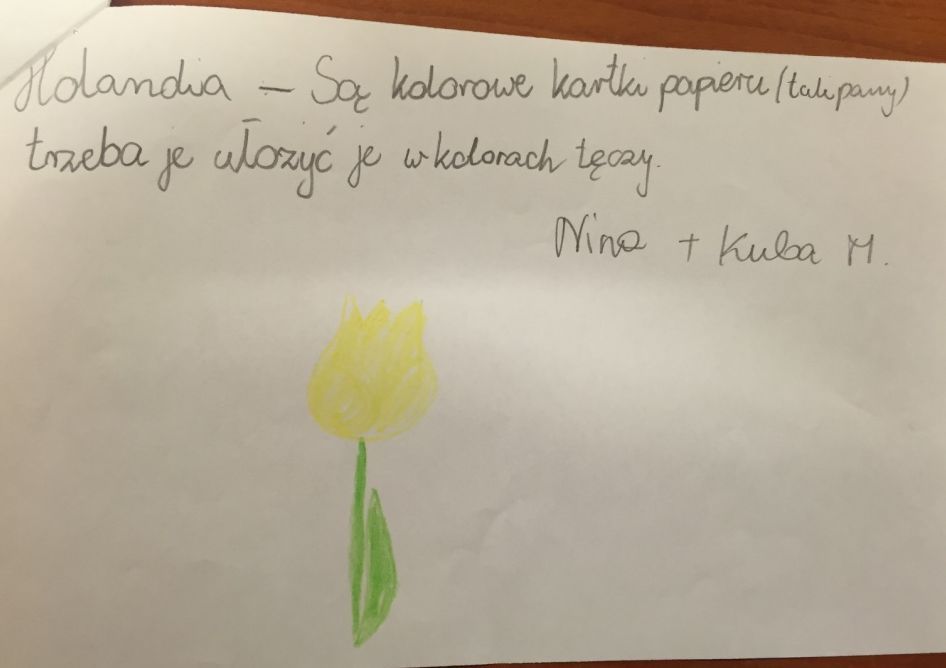 Holandia – Są kolorowe kartki papieru (tulipany)
trzeba je ułożyć je w kolorach tęczy.
Nina + Kuba M.